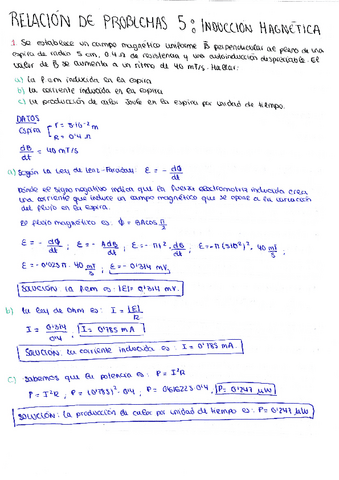 RELACIÓN DE PROBLEMAS 5: INDUCCIÓN MAGNÉTICA
1. Se establece un campo magnético uniforme B perpendicular al plano de una
espira de radio 5 cm, 0'4 Ω de resistencia y una autoinducción despreciable. El
valor de B se aumenta a un ritmo de 40 mT/s. Hallar:
a) la fem inducida en la espira
b) la corriente inducida en la espira
c) la producción de calor Joule en la espira por unidad de tiempo.
DATOS
Espira r = 5·10⁻² m
R = 0'4 Ω
dB/dt = 40 mT/s
a) Según la Ley de Lenz-Faraday: ε = - dΦ/dt
Donde el signo negativo indica que la fuerza electromotriz inducida crea
una corriente que induce un campo magnético que se opone a la variación
del flujo en la espira.
El flujo magnético es: Φ = BA cos
ε = - dΦ/dt ; ε = - A dB/dt ; ε = - πr² · dB/dt ; ε = -π(5·10⁻²)² · 40 mT/s ;
ε = - 0'0025 π · 40 mT/s ; ε = - 0'314 mV.
SOLUCIÓN: la fem es: |ε| = 0'314 mV.
b) la ley de Ohm es: I = |ε|/R
I = 0'314/0'4 , I = 0'785 mA
SOLUCIÓN: la corriente inducida es: I = 0'785 mA
c) Sabemos que la potencia es: P = I²R
P = I²R , P = (0'785)² · 0'4 , P = 0'616225·0'4 , P = 0'247 μW
SOLUCIÓN: la producción de calor por unidad de tiempo es: P = 0'247 μW